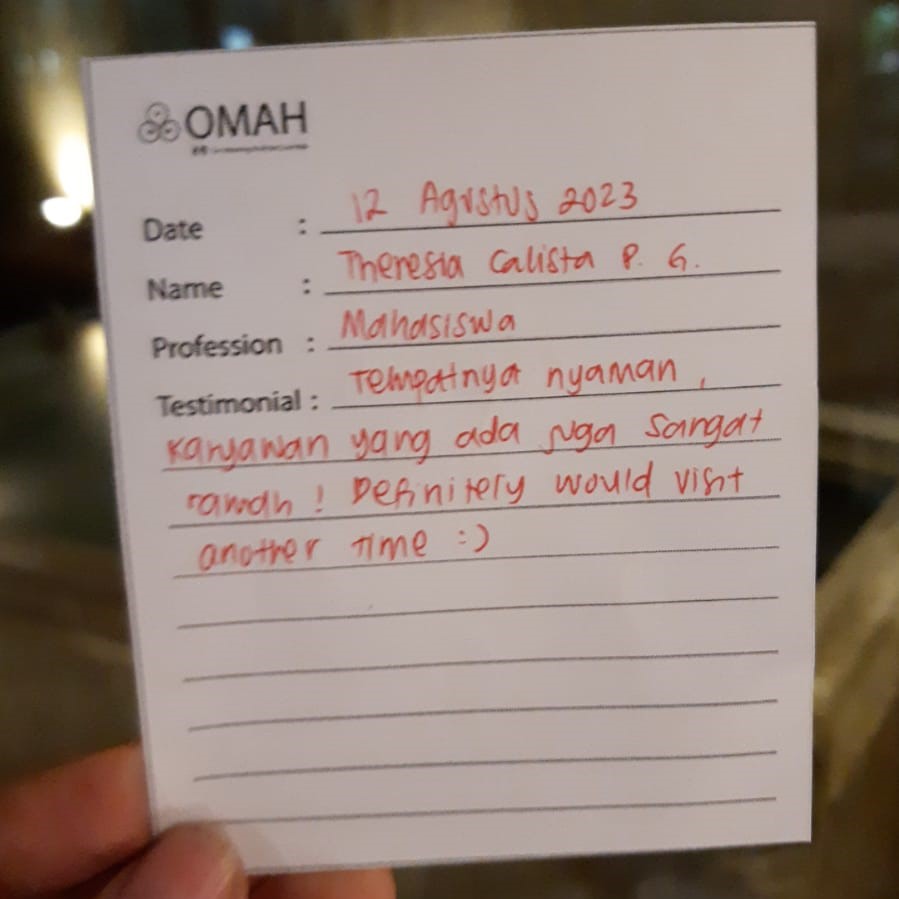 OMAH
Date : 12 Agustus 2023
Name : Theresia Calista P. G.
Profession : Mahasiswa
Testimonial : Tempatnya nyaman,
karyawan yang ada juga sangat
ramah! Definitely would visit
another time :)